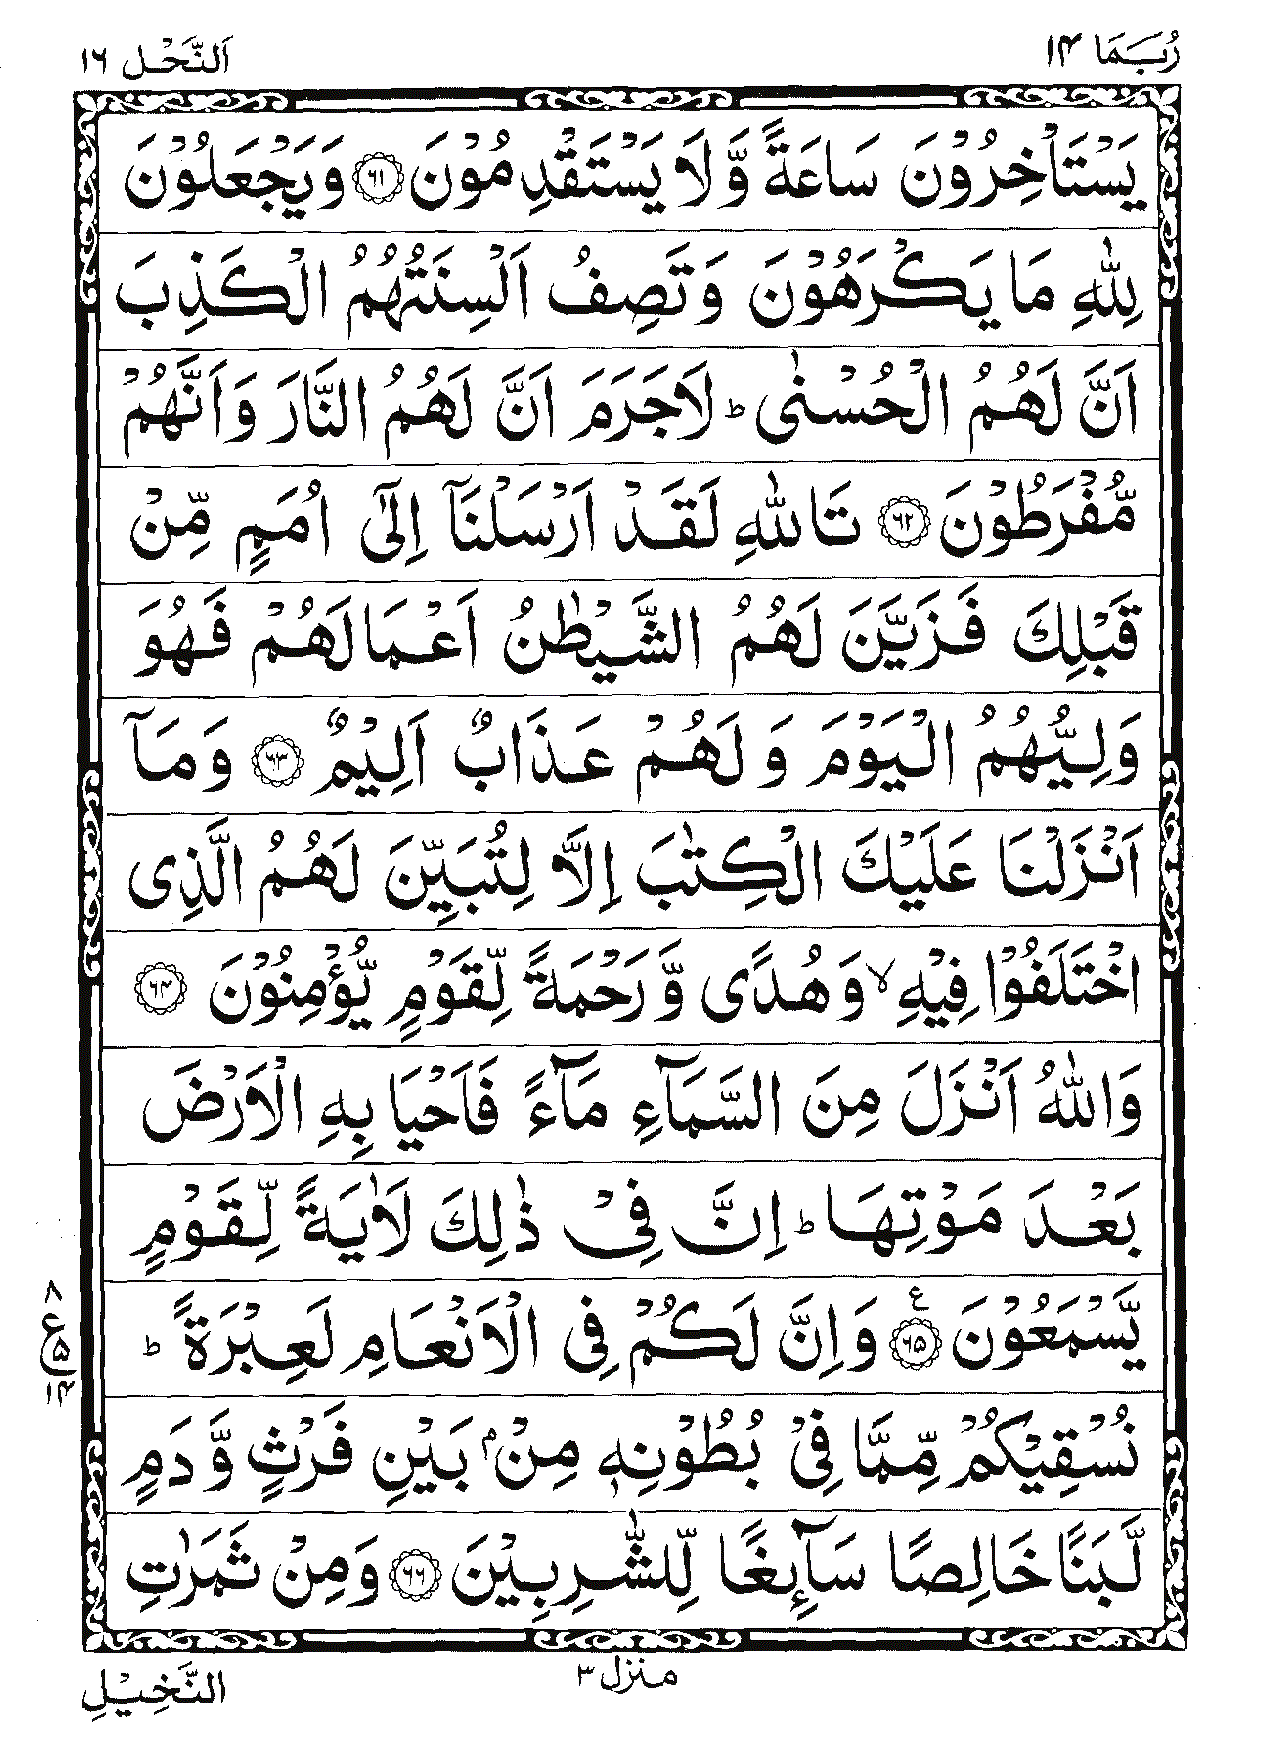 رُبَمَا ١٤ اَلنَّحْل ١٦
يَسْتَاْخِرُوْنَ سَاعَةً وَّ لَا يَسْتَقْدِمُوْنَ ۝٦١ وَيَجْعَلُوْنَ
لِلّٰهِ مَا يَكْرَهُوْنَ وَتَصِفُ اَلْسِنَتُهُمُ الْكَذِبَ
اَنَّ لَهُمُ الْحُسْنٰى ؕ لَاجَرَمَ اَنَّ لَهُمُ النَّارَ وَاَنَّهُمْ
مُّفْرَطُوْنَ ۝٦٢ تَاللّٰهِ لَقَدْ اَرْسَلْنَاۤ اِلٰۤى اُمَمٍ مِّنْ
قَبْلِكَ فَزَيَّنَ لَهُمُ الشَّيْطٰنُ اَعْمَالَهُمْ فَهُوَ
وَلِيُّهُمُ الْيَوْمَ وَلَهُمْ عَذَابٌ اَلِيْمٌ ۝٦٣ وَمَاۤ
اَنْزَلْنَا عَلَيْكَ الْكِتٰبَ اِلَّا لِتُبَيِّنَ لَهُمُ الَّذِى
اخْتَلَفُوْا فِيْهِ ۙ وَهُدًى وَّرَحْمَةً لِّقَوْمٍ يُّؤْمِنُوْنَ ۝٦٤
وَاللّٰهُ اَنْزَلَ مِنَ السَّمَآءِ مَآءً فَاَحْيَا بِهِ الْاَرْضَ
بَعْدَ مَوْتِهَا ؕ اِنَّ فِىْ ذٰلِكَ لَاٰيَةً لِّقَوْمٍ
يَّسْمَعُوْنَ ۝٦٥ ع وَاِنَّ لَكُمْ فِى الْاَنْعَامِ لَعِبْرَةً ؕ
٨
ع ٥
١٤
نُسْقِيْكُمْ مِّمَّا فِىْ بُطُوْنِهٖ مِنْۢ بَيْنِ فَرْثٍ وَّدَمٍ
لَّبَنًا خَالِصًا سَآىِٕغًا لِّلشّٰرِبِيْنَ ۝٦٦ وَمِنْ ثَمَرٰتِ
منزل ٣
النَّخِيْلِ